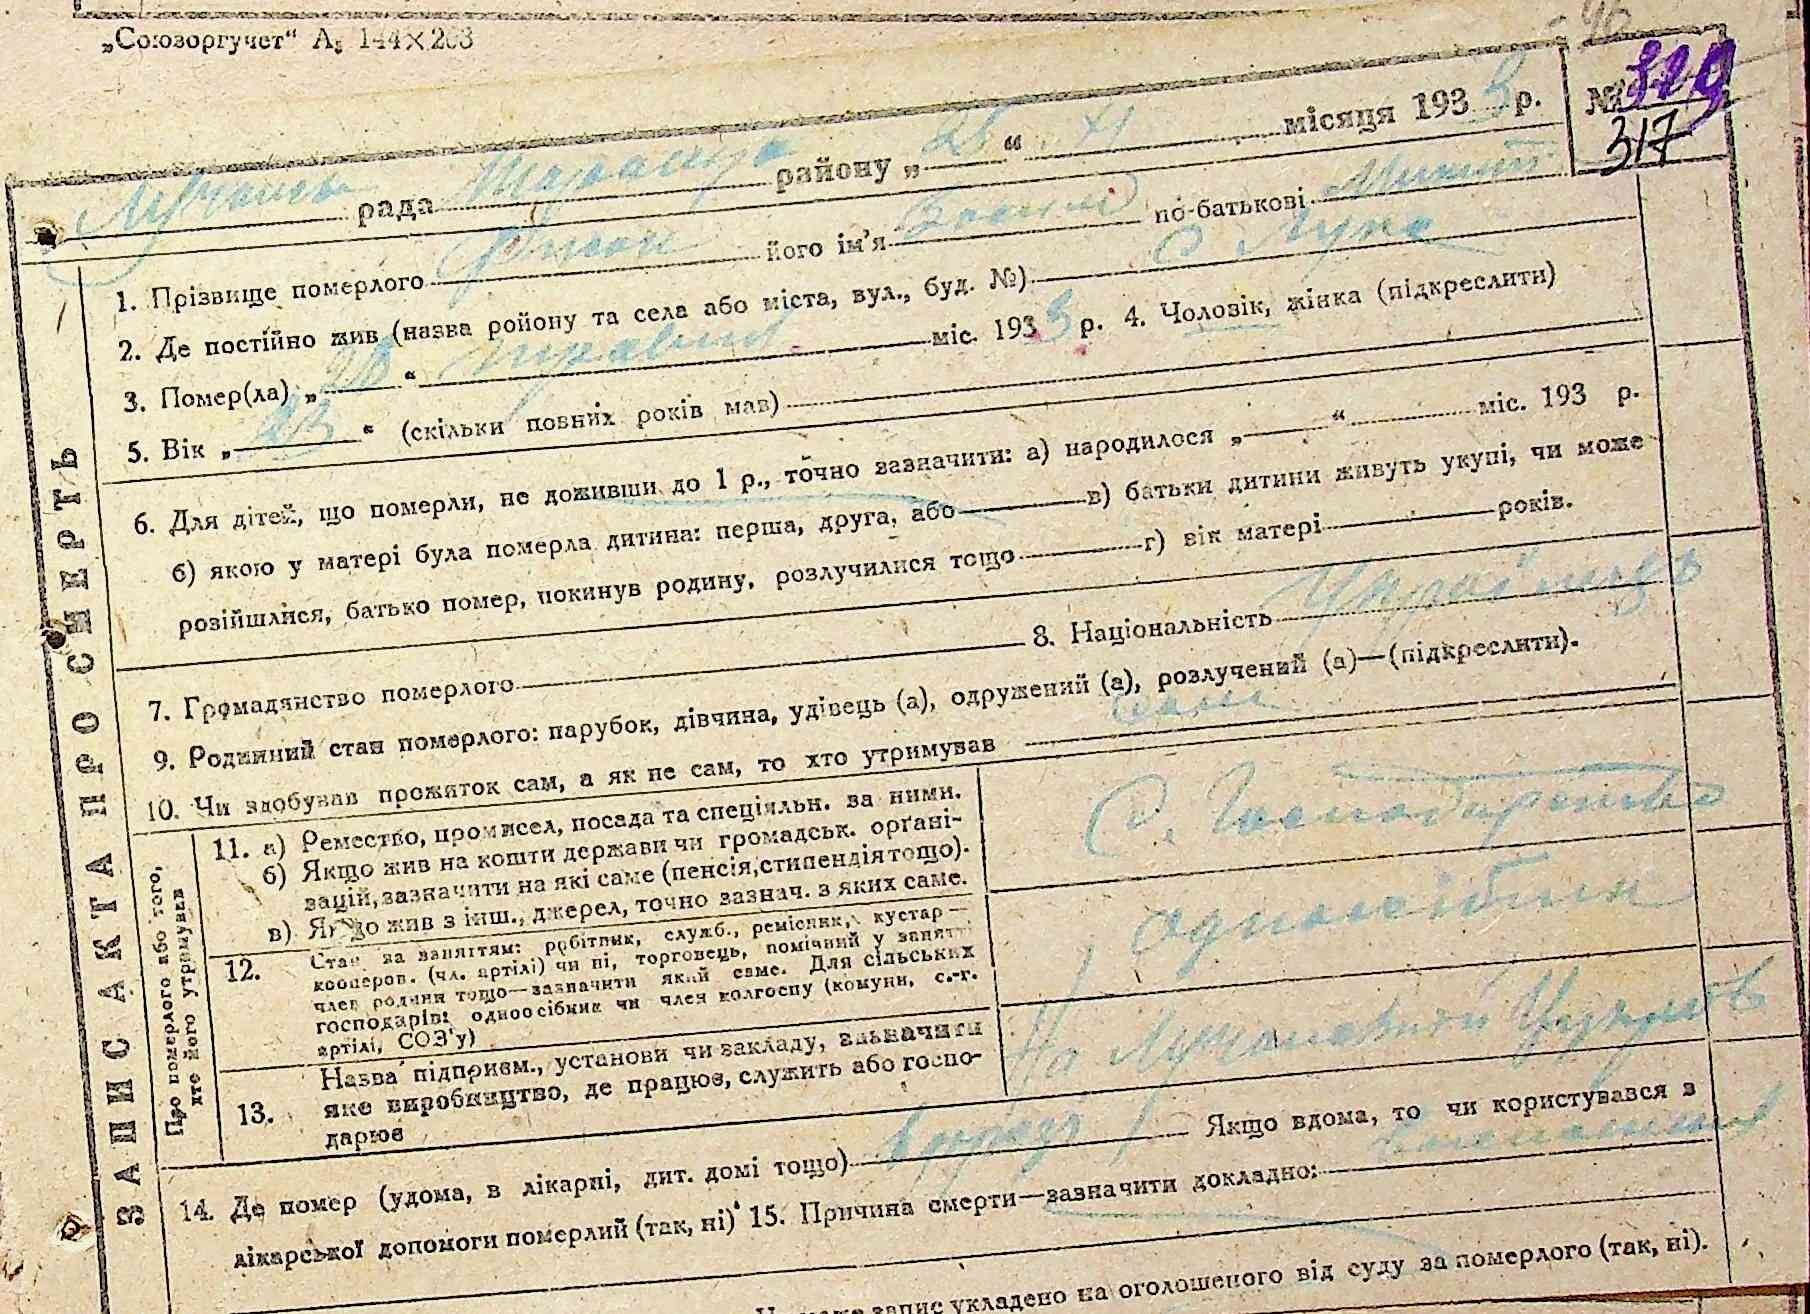 „Союзоргучет“ А₅ 144×203
46
№ 329
317
рада района району „ 25 “ XI місяця 1933 р.
1. Прізвище померлого його ім'я по-батькові
2. Де постійно жив (назва ройону та села або міста, вул., буд. №) с Лука
3. Помер(ла) „ 28 “ травня міс. 1933 р. 4. Чоловік, жінка (підкреслити)
5. Вік „ 23 “ (скільки повних років мав)
6. Для дітей, що померли, не доживши до 1 р., точно зазначити: а) народилося „ “ міс. 193 р.
б) якою у матері була померла дитина: перша, друга, або в) батьки дитини живуть укупі, чи може
розійшлися, батько помер, покинув родину, розлучилися тощо г) вік матері років.
7. Громадянство померлого 8. Національність Українець
9. Родинний стан померлого: парубок, дівчина, удівець (а), одружений (а), розлучений (а)—(підкреслити).
10. Чи здобував прожиток сам, а як не сам, то хто утримував сам
ЗАПИС АКТА ПРО СМЕРТЬ
Про померлого або того, хто його утримував
11. а) Ремество, промисел, посада та спеціяльн. за ними.
б) Якщо жив на кошти держави чи громадськ. орґані-
зацій, зазначити на які саме (пенсія, стипендія тощо).
в) Якщо жив з інш., джерел, точно зазнач. з яких саме.
С. Господарство
12. Стан за заняттям: робітник, служб., ремісник, кустар—
кооперов. (чл. артілі) чи ні, торговець, помічний у занятті
член родини тощо—зазначити який саме. Для сільських
господарів: одноосібник чи член колгоспу (комуни, с.-г.
артілі, СОЗ'у)
одноосібник
13. Назва підприєм., установи чи закладу, визначити
яке виробництво, де працює, служить або госпо-
дарює
На
14. Де помер (удома, в лікарні, дит. домі тощо) Якщо вдома, то чи користувався з
лікарської допомоги померлий (так, ні) 15. Причина смерти—зазначити докладно:
запис укладено на оголошеного від суду за померлого (так, ні).